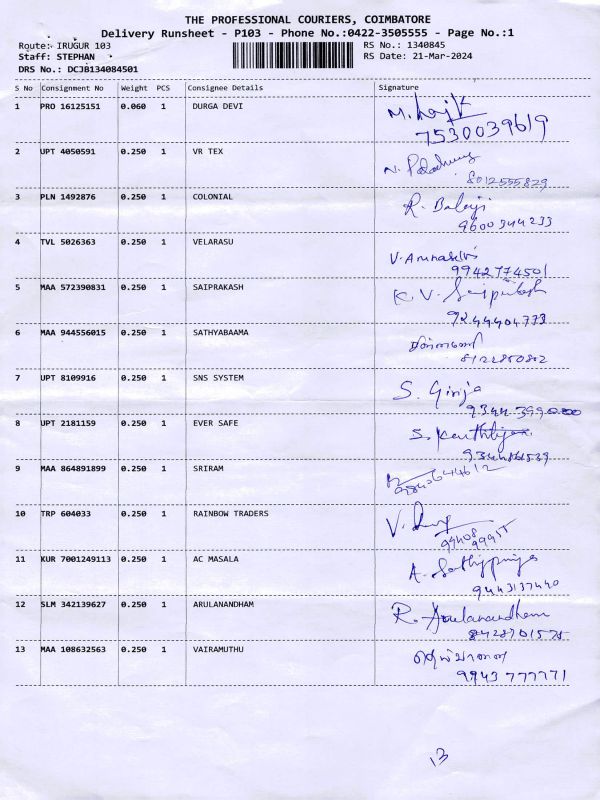 THE PROFESSIONAL COURIERS, COIMBATORE
Delivery Runsheet - P103 - Phone No.:0422-3505555 - Page No.:1
Route: IRUGUR 103 RS No.: 1340845
Staff: STEPHAN RS Date: 21-Mar-2024
DRS No.: DCJB134084501
S No Consignment No Weight PCS Consignee Details Signature
1 PRO 16125151 0.060 1 DURGA DEVI
7530039619
2 UPT 4050591 0.250 1 VR TEX
8012555829
3 PLN 1492876 0.250 1 COLONIAL R. Balaji
9600344233
4 TVL 5026363 0.250 1 VELARASU
9942774501
5 MAA 572390831 0.250 1 SAIPRAKASH K.V. Saiprakash
9244404733
6 MAA 944556015 0.250 1 SATHYABAAMA
8122850802
7 UPT 8109916 0.250 1 SNS SYSTEM S. Girija
8 UPT 2181159 0.250 1 EVER SAFE
9 MAA 864891899 0.250 1 SRIRAM
10 TRP 604033 0.250 1 RAINBOW TRADERS
11 KUR 7001249113 0.250 1 AC MASALA
9443137440
12 SLM 342139627 0.250 1 ARULANANDHAM R. Arulanandham
13 MAA 108632563 0.250 1 VAIRAMUTHU
9943777771
13